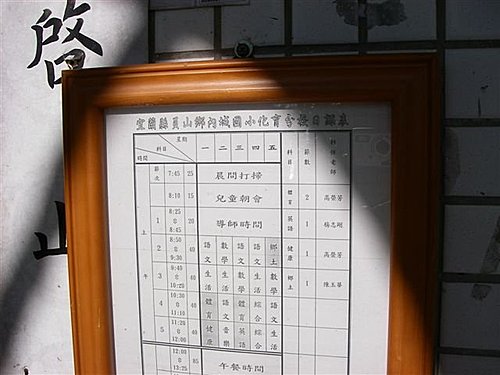 啓
山
宜蘭縣員山鄉內城國小化育分校日課表
星期
科目
時間
一 二 三 四 五
科目 節數 科任老師
節次 7:45 25 晨間打掃
8:10 15 兒童朝會
體育 2 高榮芳
上午
1 8:25 0 8:45 20 導師時間
英語 1 楊志剛
2 8:50 0 9:30 40 語文 數學 語文 語文 鄉土
健康 1 高榮芳
3 9:40 0 10:20 40 生活 生活 數學 生活 數學
鄉土 1 陳玉華
4 10:30 0 11:10 40 體育 語文 語文 綜合 綜合
5 11:20 0 12:00 40 健康 音樂 英語 綜合 生活
12:00 0 13:25 85 午餐時間